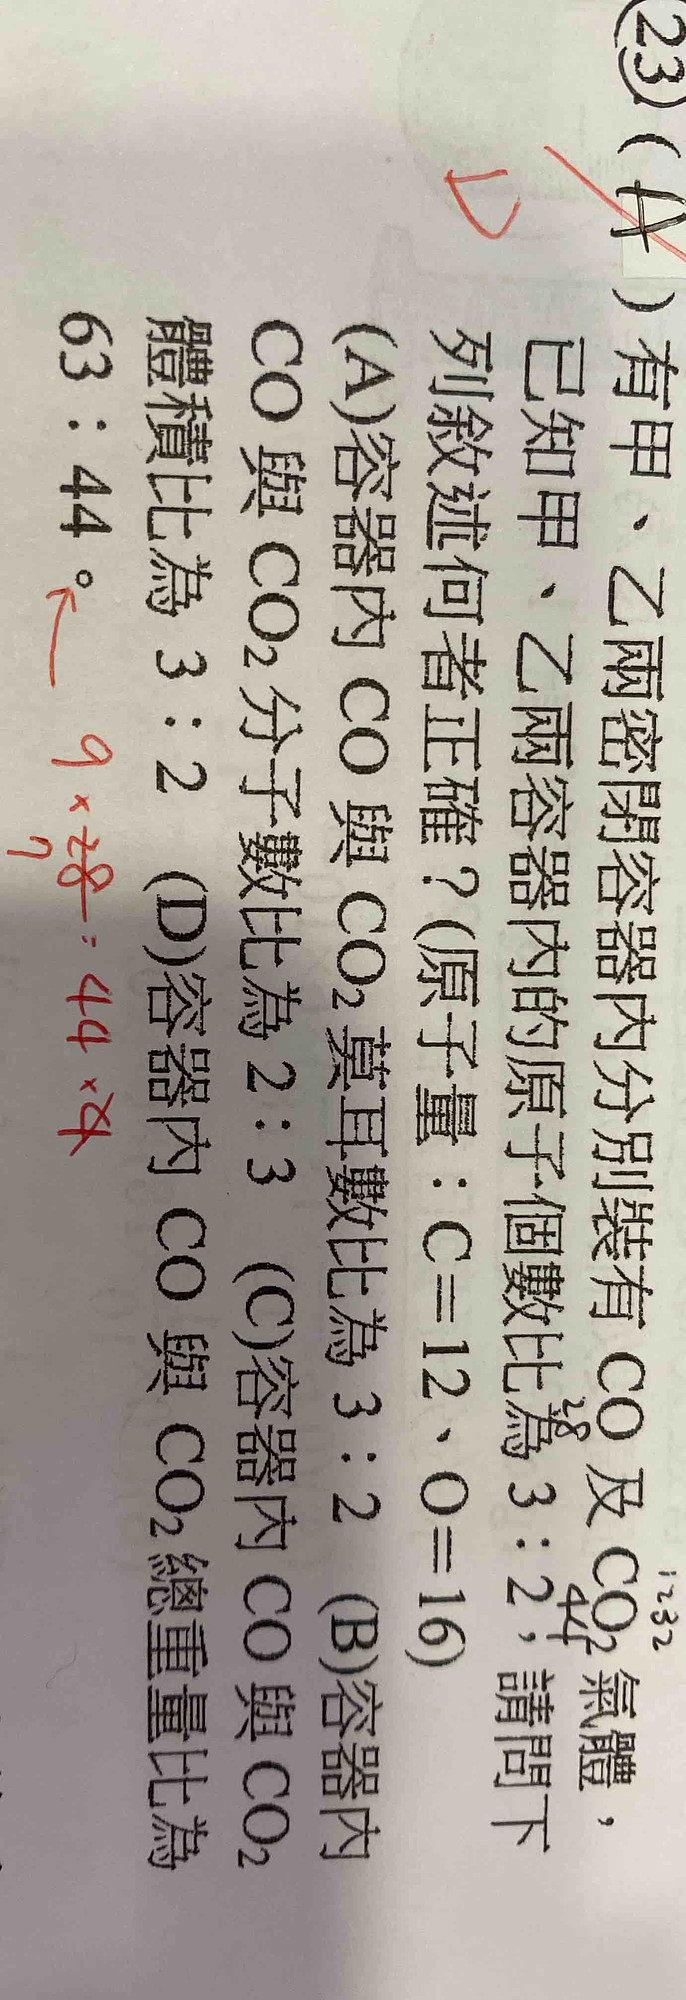 23 ( A ) 有甲、乙兩密閉容器內分別裝有 CO 及 CO₂ 氣體，
已知甲、乙兩容器內的原子個數比為 3：2，請問下
列敘述何者正確？(原子量：C＝12、O＝16)
(A)容器內 CO 與 CO₂ 莫耳數比為 3：2 (B)容器內
CO 與 CO₂ 分子數比為 2：3 (C)容器內 CO 與 CO₂
體積比為 3：2 (D)容器內 CO 與 CO₂ 總重量比為
63：44。
D
1232
28
44
9×28:44×4
7